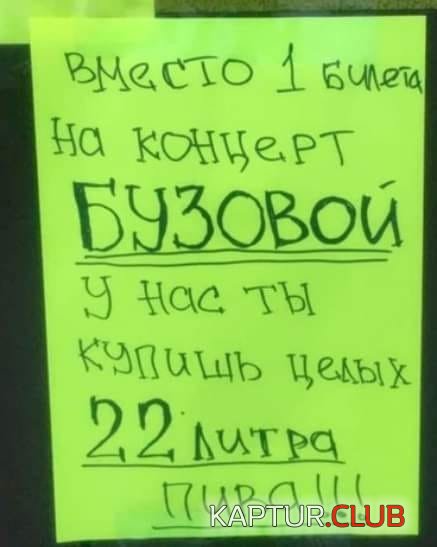 Вместо 1 билета
на концерт
БУЗОВОЙ
у нас ты
купишь целых
22 литра
пива!!!
KAPTUR.CLUB